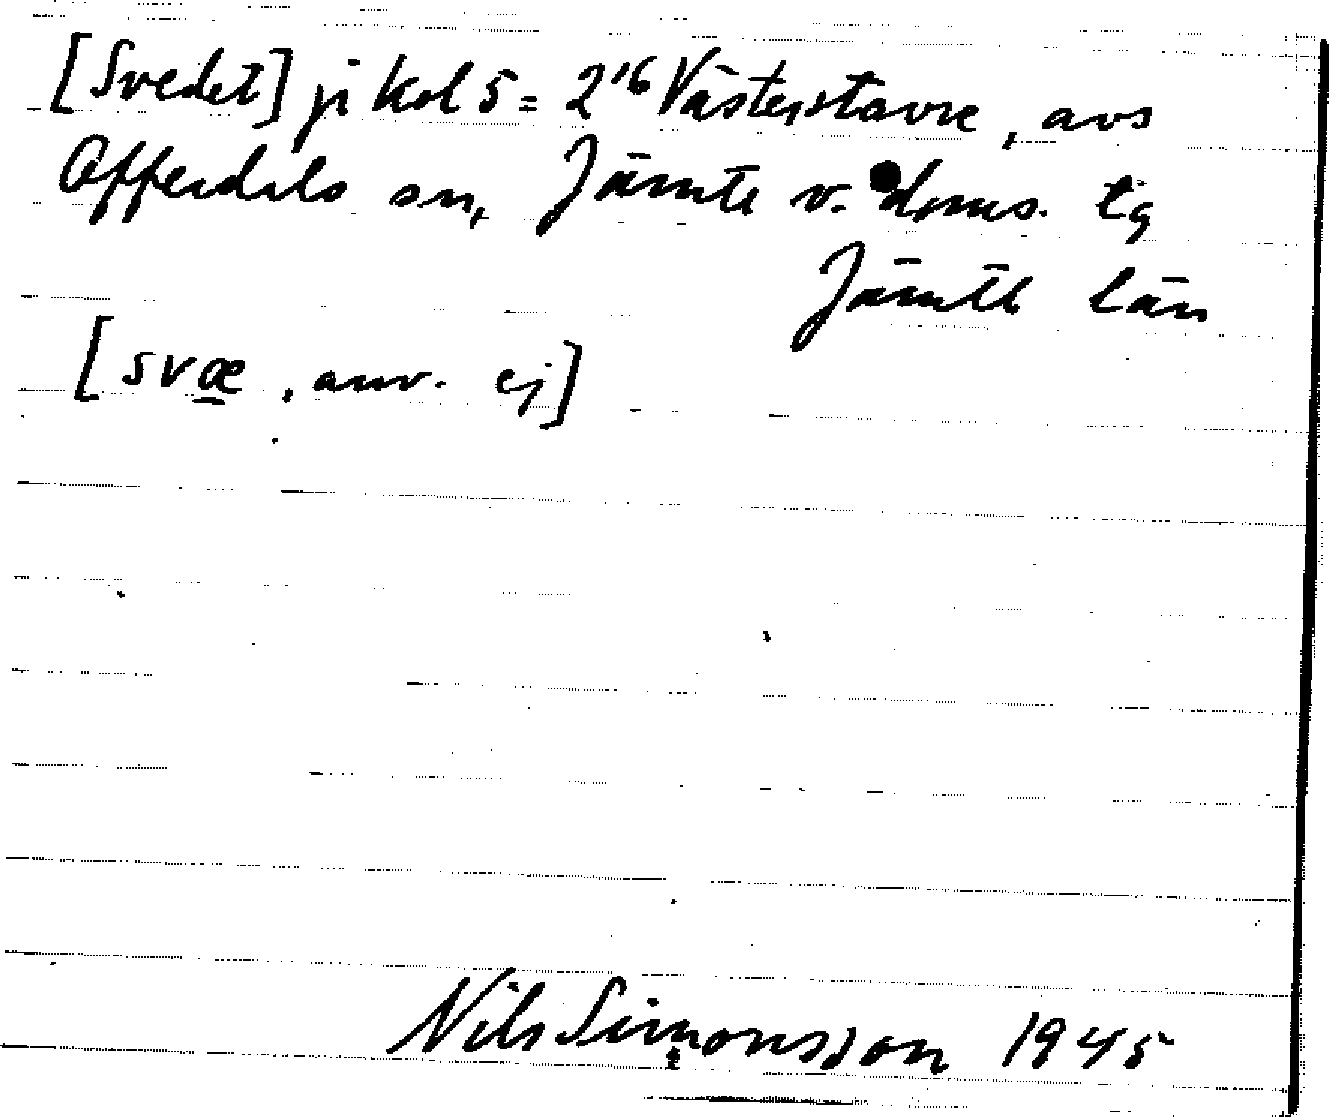 [Svedet] ji kol 5 = 2¹⁶ Västerstavre, avs
Offerdals sn, Jämtl v. doms. tg
Jämtl län
[svæ, anv. ej]
Nils Simonsson 1945